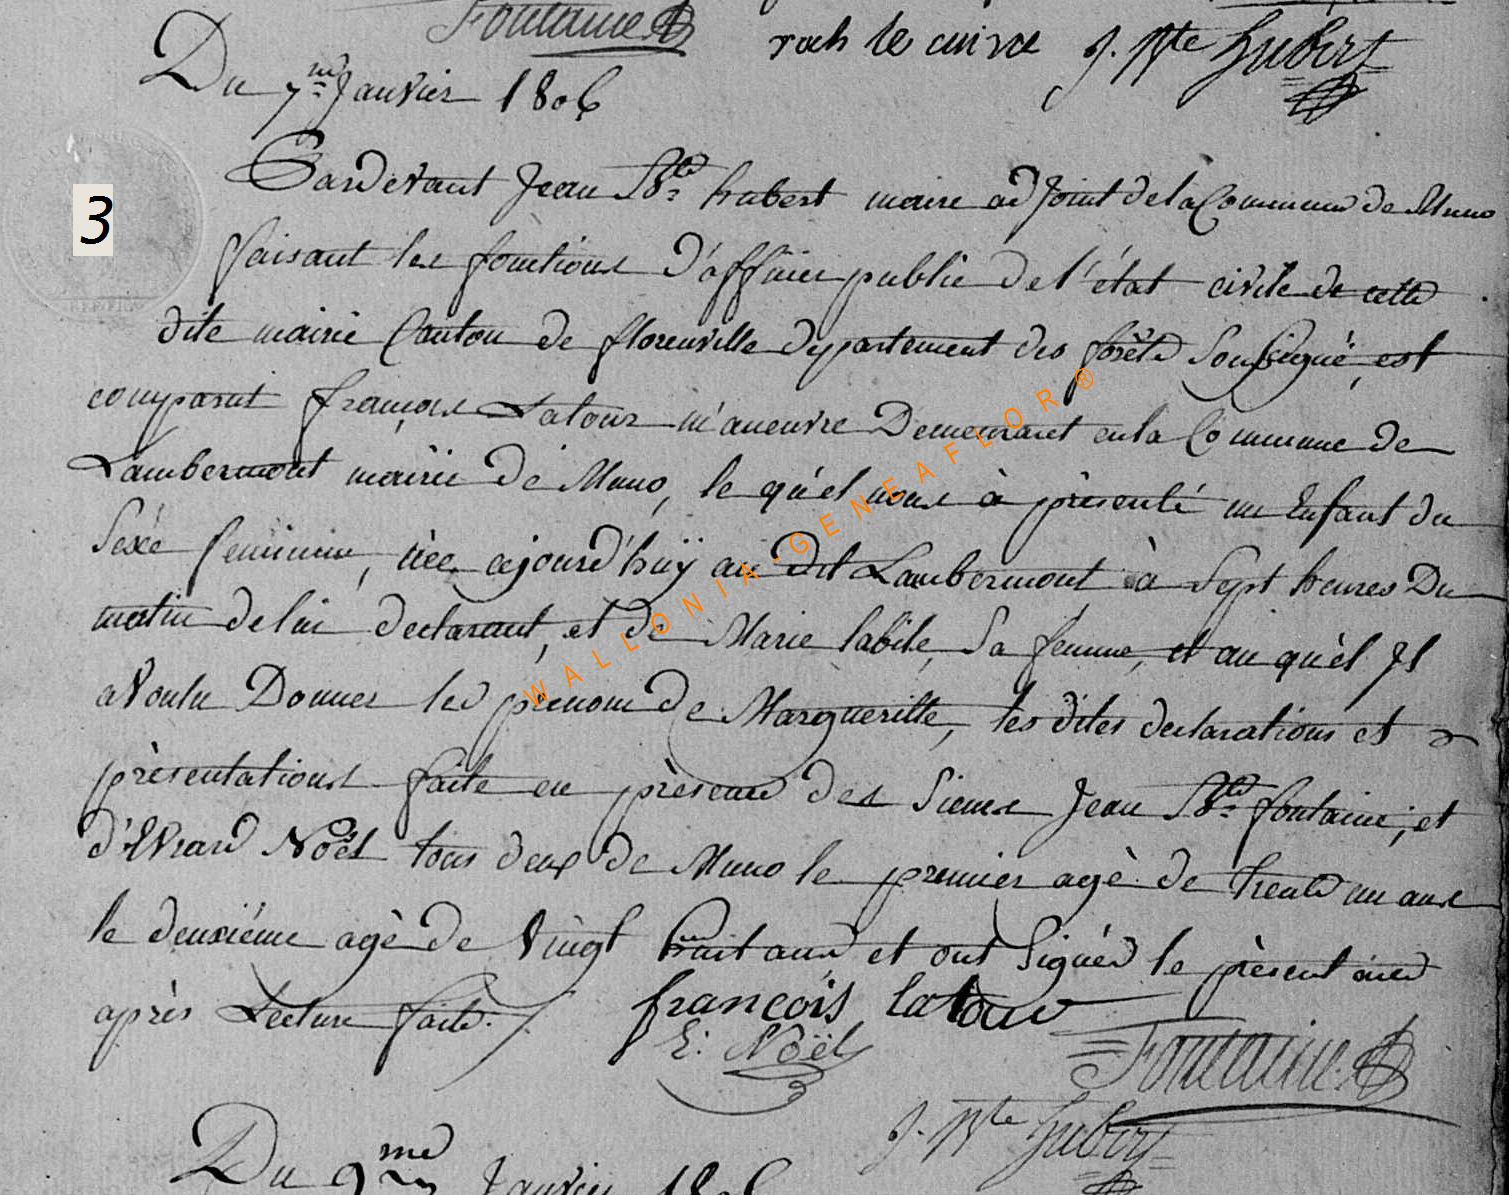 Fontaine
roch le cuivre J. Bte Hubert
Du 7.me Janvier 1806
3
Pardevant Jean Bte. hubert maire adjoint de la Commune de Muno
faisant les fonctions d'officier public de l'état civile de cette
dite mairie Canton de florenville departement des forêts Soussigné, est
comparut françois Latour m'aneuvre Demeurant en la Commune de
Lambermont mairie de Muno, le qu'el nous à présenté un Enfant du
Séxé feminin, née ajourd'huÿ au dit Lambermont à Sept heures Du
matin de lui declarant, et de Marie labile, Sa femme, et au qu'èl Jl
a Voulu Donner les prenom de Margueritte, les dites declarations et
prèsentations faite en prèsence des Sieurs Jean Bte. fontaine, et
d'EVrard Noël tous deux de Muno le premier agè de trente un ans
le deuxiéme agè de Vingt huit ans et ont Signér le prèsent
après Lecture faite.
françois latour
E: Noël
Fontaine
J. Bte Hubert
Du 9me Janvier 1806
WALLONIA-GENEAFLOR®